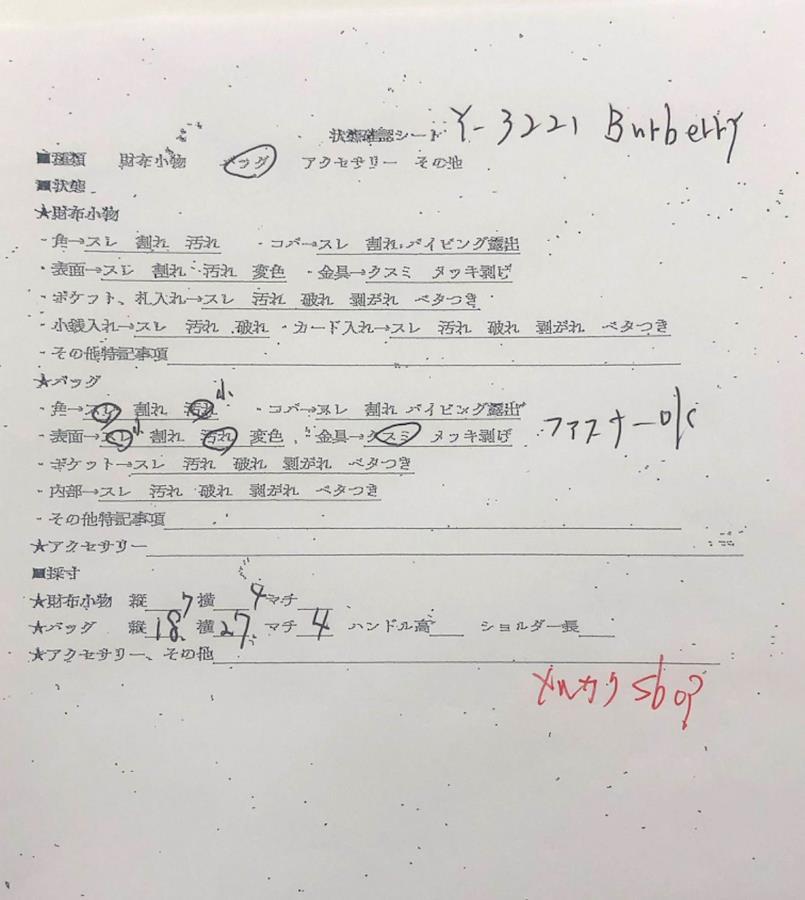 状態確認シート Y-3221 Burberry
■種類 財布小物 バッグ アクセサリー その他
■状態
★財布小物
・角→スレ 割れ 汚れ ・コバ→スレ 割れ パイピング露出
・表面→スレ 割れ 汚れ 変色 ・金具→クスミ メッキ剥げ
・ポケット、札入れ→スレ 汚れ 破れ 剥がれ ベタつき
・小銭入れ→スレ 汚れ 破れ ・カード入れ→スレ 汚れ 破れ 剥がれ ベタつき
・その他特記事項
★バッグ
小
・角→スレ 割れ 汚れ ・コバ→スレ 割れ パイピング露出
小
・表面→スレ 割れ 汚れ 変色 ・金具→クスミ メッキ剥げ ファスナーok
・ポケット→スレ 汚れ 破れ 剥がれ ベタつき
・内部→スレ 汚れ 破れ 剥がれ ベタつき
・その他特記事項
★アクセサリー
■採寸
★財布小物 縦 7 横 4 マチ
★バッグ 縦 18. 横 27. マチ 4 ハンドル高 ショルダー長
★アクセサリー、その他
メルカリ shop